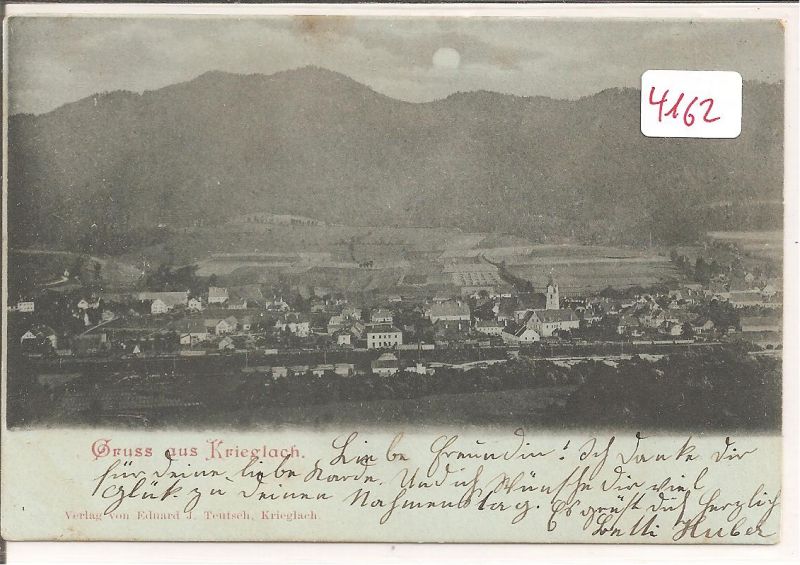 4162
Gruss aus Krieglach.
Liebe Freundin! Ich danke dir
für deine liebe Karde. Und ich Wünsche dir viel
Glük zu deinen Nahmenstag. Es grüst dich herzlich
Betti Huber
Verlag von Eduard J. Teutsch, Krieglach.